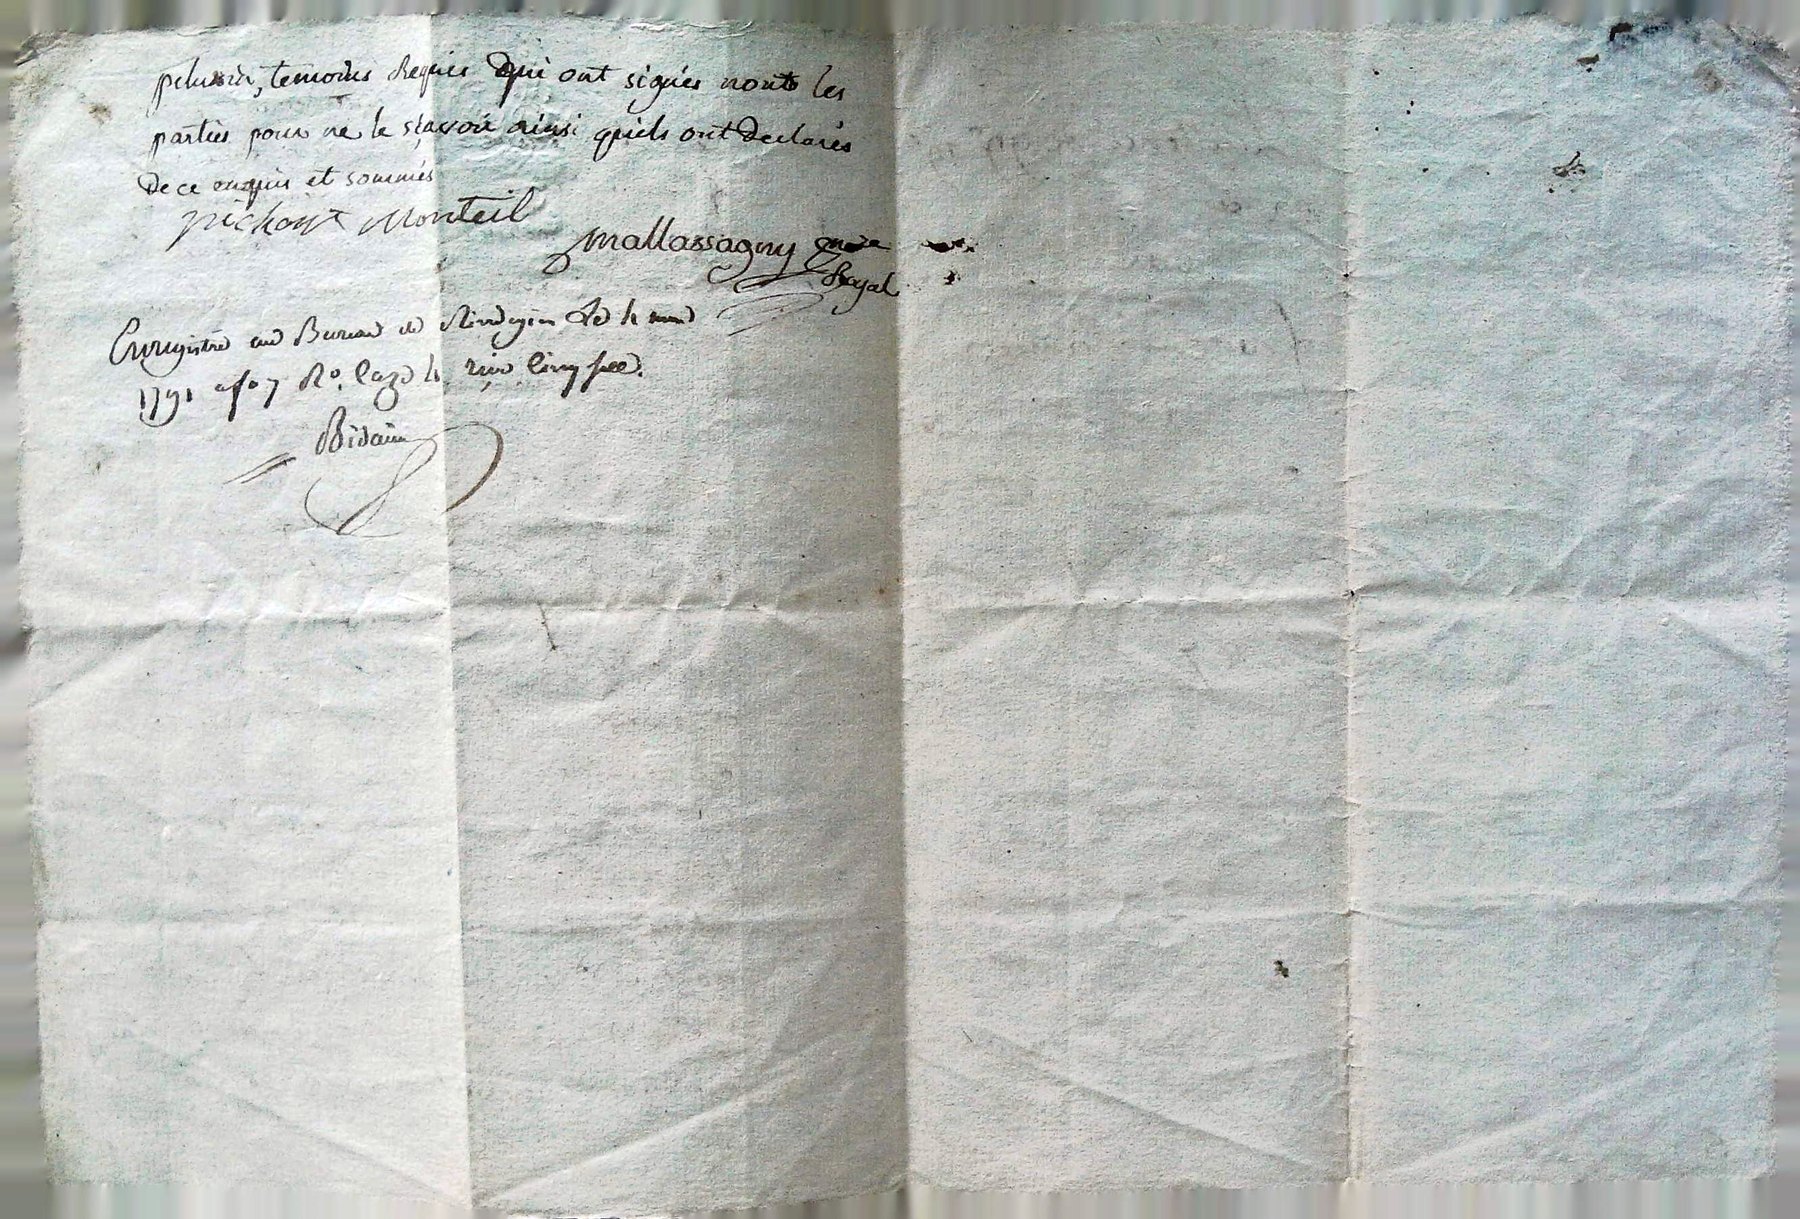 pelussin, temoins Requis qui ont signés nont les
parties pour ne le sçavoir ainsi quiels ont declarés
de ce enquis et sommés
pichon Monteil
Mallassagny nore
Royal
Enregistré au Bureau de le
1791 fo 7 Ro. Cage 4 cinq
Bidain